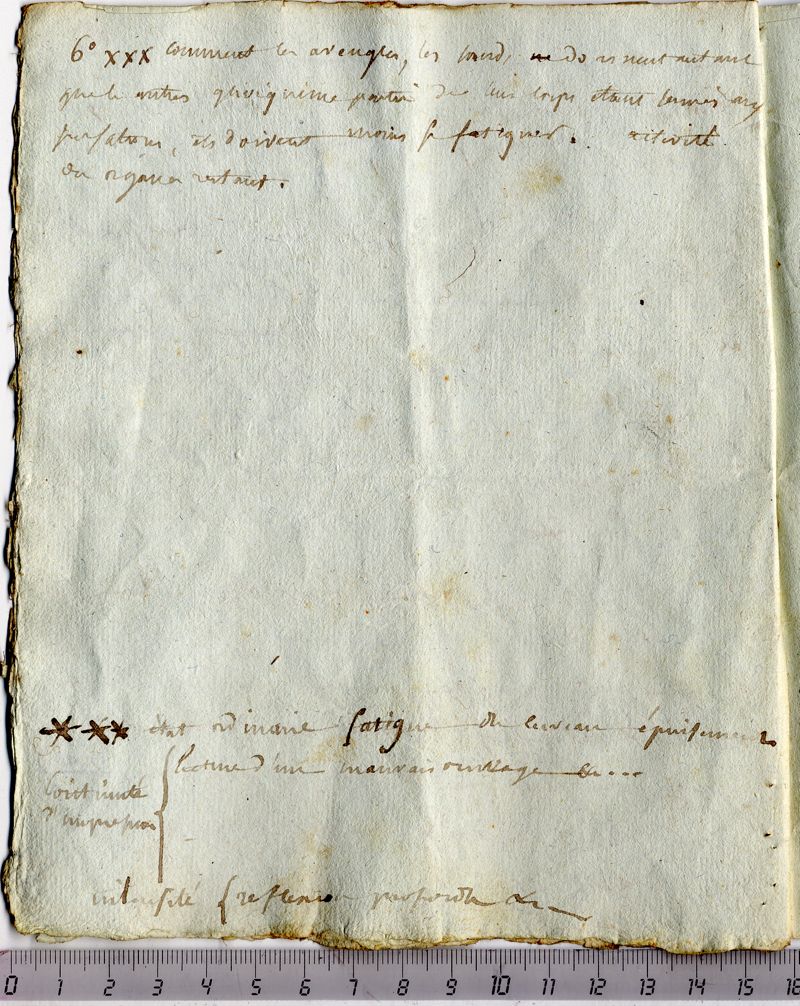 6° xxx comment les aveugles, les sourds, ne dorment autant
que les autres quoiqu'une partie de leur corps étant fermés aux
sensations, ils doivent moins se fatiguer. activité
des organes restant.
*** état ordinaire fatigue du cerveau épuisement
lecture d'un mauvais ouvrage &...
Continuité
d'impression
intensité { reflexion profonde &
0 1 2 3 4 5 6 7 8 9 10 11 12 13 14 15 16